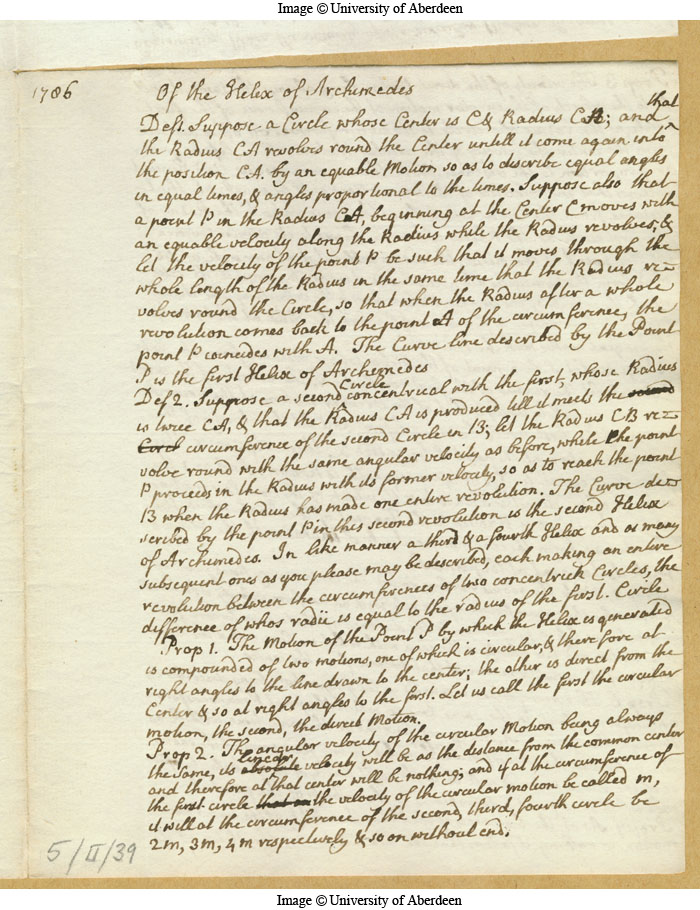 Image © University of Aberdeen
1786 Of the Helix of Archimedes
Def 1. Suppose a Circle whose Center is C & Radius CA; and that
the Radius CA revolves round the Center untill it come again into
the position CA. by an equable Motion so as to describe equal angles
in equal times, & angles proportional to the times. Suppose also that
a point P in the Radius CA, beginning at the Center C moves with
an equable velocity along the Radius while the Radius revolves; &
let the velocity of the point P be such that it moves through the
whole length of the Radius in the same time that the Radius re=
volves round the Circle, so that when the Radius after a whole
revolution comes back to the point A of the circumference, the
point P coincides with A. The Curve line described by the Point
P is the first Helix of Archimedes
Def 2. Suppose a second Circle concentrical with the first, whose Radius
is twice CA, & that the Radius CA is produced till it meets the second
Circl circumference of the second Circle in B; let the Radius CB re=
volve round with the same angular velocity as before, while the point
P proceeds in the Radius with its former velocity, so as to reach the point
B when the Radius has made one entire revolution. The Curve de=
scribed by the point P in this second revolution is the second Helix
of Archimedes. In like manner a third & a fourth Helix and as many
subsequent ones as you please may be described, each making an entire
revolution between the circumferences of two concentrick Circles, the
difference of whos radii is equal to the radius of the first. Circle
Prop 1. The Motion of the Point P by which the Helix is generated
is compounded of two motions, one of which is circular, & therefore at
right angles to the line drawn to the center; the other is direct from the
Center & so at right angles to the first. Let us call the first the circular
motion, the second, the direct Motion.
Prop 2. The angular velocity of the circular Motion being always
the same, its absolute linear velocity will be as the distance from the common center
and therefore at that center will be nothing; and if at the circumference of
the first circle the velocity of the circular motion be called m,
it will at the circumference of the second, third, fourth circle be
2m, 3m, 4m respectively & so on without end.
5/II/39
Image © University of Aberdeen